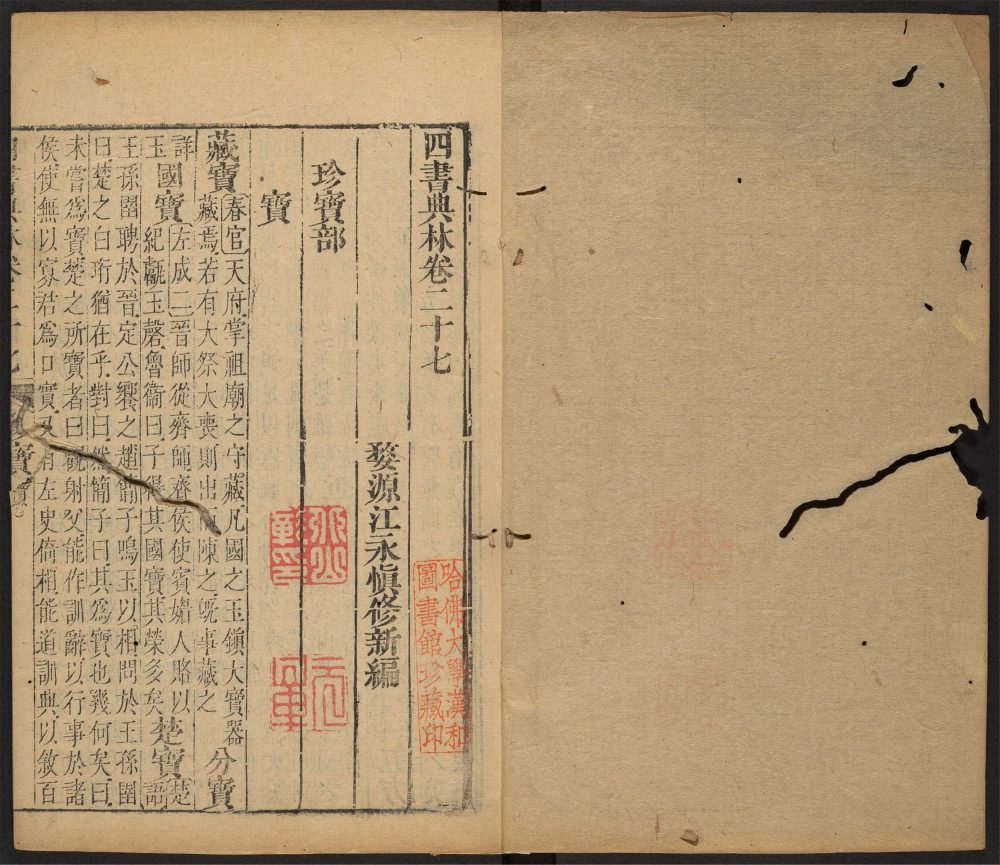 四書典林卷二十七
婺源江永愼修新編
珍寶部
寶
藏寶 春官天府掌祖廟之守藏凡國之玉鎮大寶器
藏焉若有大祭大喪則出而陳之旣事藏之 分寶
詳玉 國寶 左成二晉師從齊師齊侯使賓媚人賂以
紀甗玉磬魯衞曰子得其國寶其榮多矣 楚寶 楚語
王孫圉聘於晉定公饗之趙簡子鳴玉以相問於王孫圉
曰楚之白珩猶在乎對曰然簡子曰其爲寶也幾何矣曰
未嘗爲寶楚之所寶者曰觀射父能作訓辭以行事於諸
侯使無以寡君爲口實又有左史倚相能道訓典以敘百
哈佛大學漢和
圖書館珍藏印